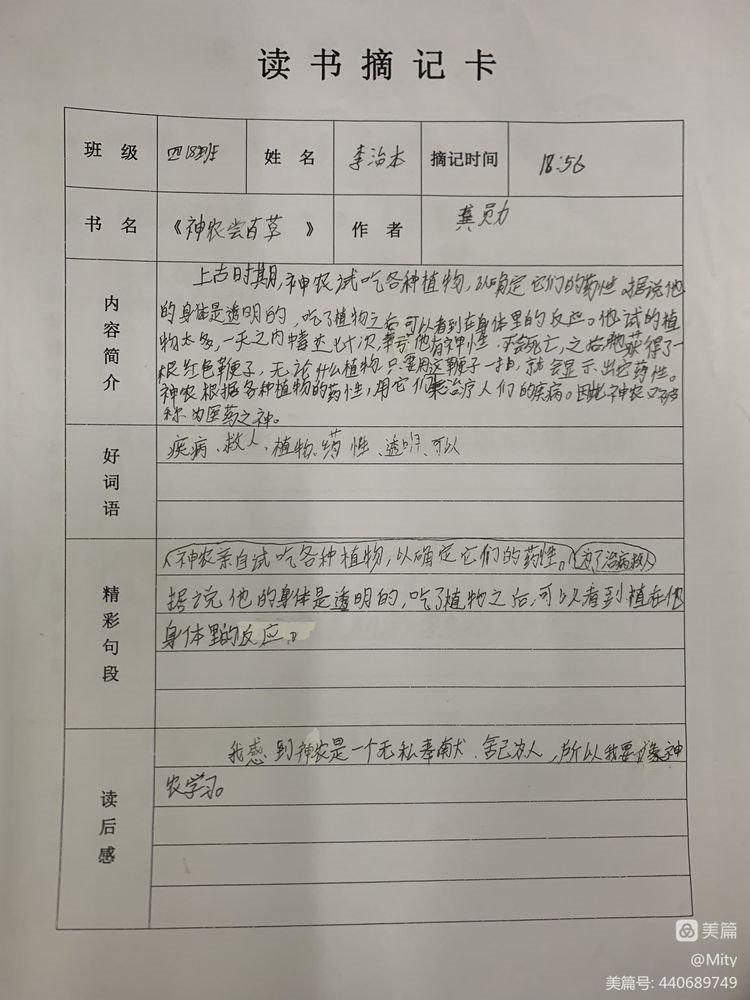 读书摘记卡
班级 四18班 姓名 李治本 摘记时间 18:56
书名 《神农尝百草》 作者 龚勋
内容简介
上古时期,神农试吃各种植物,以确定它们的药性。据说他
的身体是透明的,吃了植物之后可以看到在身体里的反应。他试的植
物太多,一天之内中毒达七十次,幸亏他有神性,不会死亡,之后他获得了一
根红色鞭子,无论什么植物,只要用这鞭子一抽,就会显示出它药性。
神农根据各种植物的药性,用它们治疗人们的疾病。因此神农又被
称为医药之神。
好词语
疾病、救人、植物、药性、透明、可以
精彩句段
(神农亲自试吃各种植物,以确定它们的药性。)(为了治病救人)
据说他的身体是透明的,吃了植物之后,可以看到植在他
身体里的反应。
读后感
我感到神农是一个无私奉献、舍己为人,所以我要像神
农学习。
美篇
@Mity
美篇号: 440689749